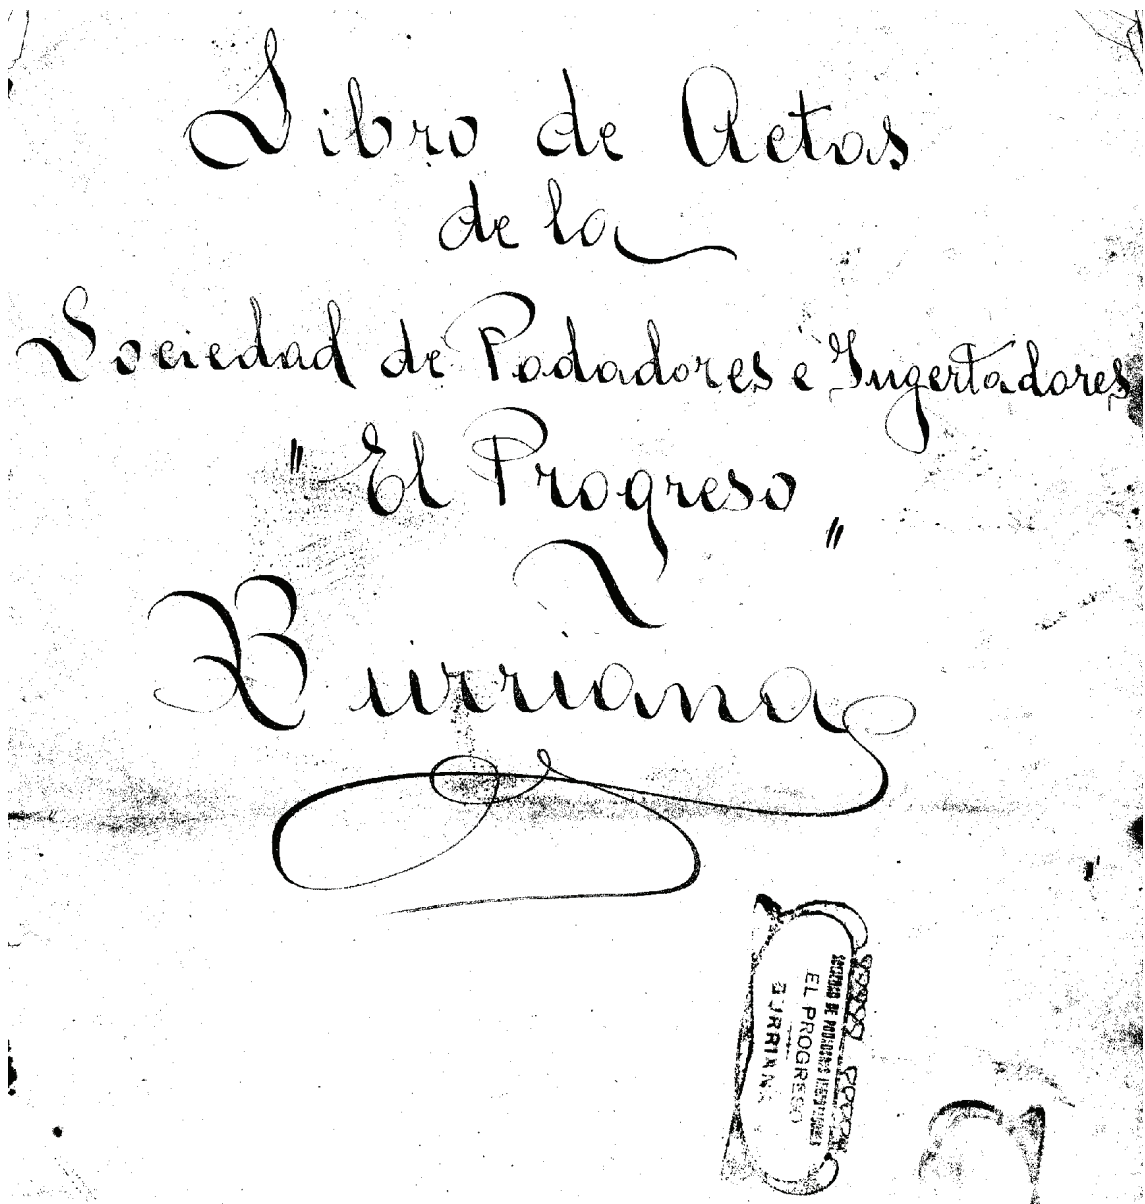 Libro de Actas
de la
Sociedad de Podadores e Ingertadores
"El Progreso"
Burriana
SOCIEDAD DE PODADORES INGERTADORES
EL PROGRESO
BURRIANA